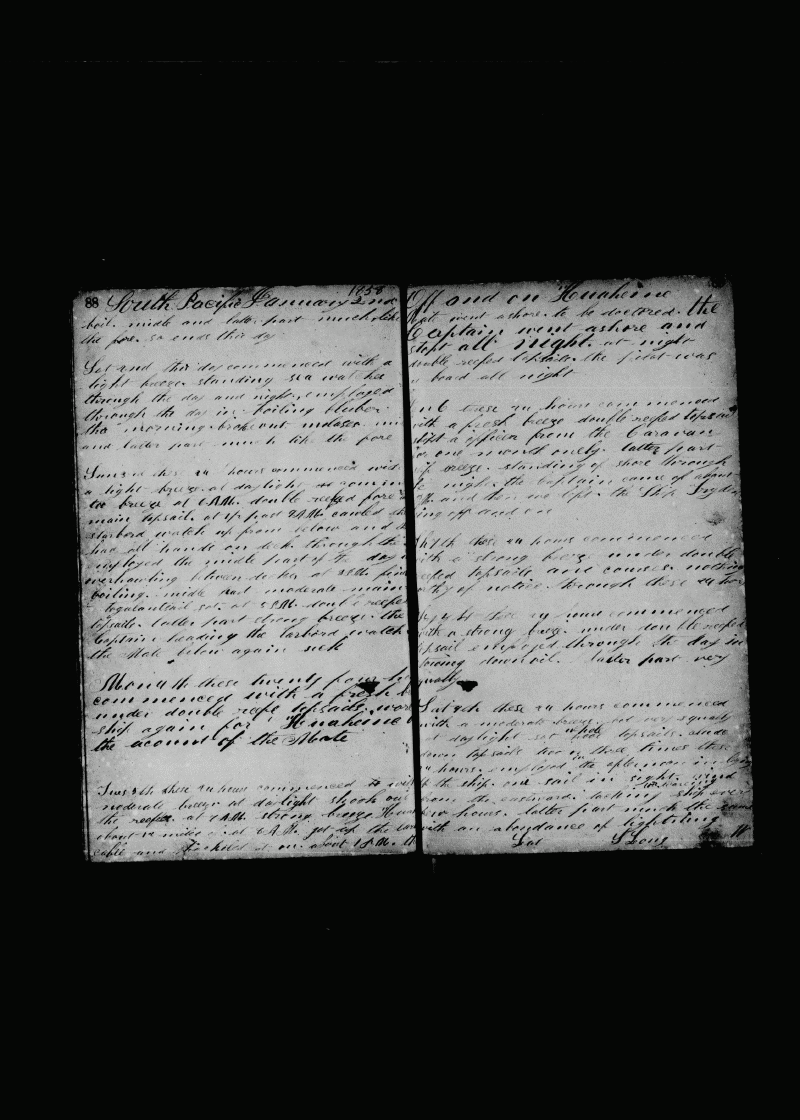 1858
88 South Pacific January 2nd
boil. midle and latter part much like
the fore. so ends this day
Sat 2nd, this day commenced with a
light breeze. standing sea watches
through the day and night, employed
through the day in boiling bluber
the morning broke out molases
and latter part much like the fore
these 24 hours commenced with
a light breeze. at daylight
breeze at 6 A.M. double reefed fore
main topsail. at ½ past 7 A.M. called the
starbord watch up from below and
had all hands on deck through the
employed the midle part of the day
overhauling between decks at
boiling. midle part moderate main
togalantsail set. at double reefed
topsails. latter part strong breeze. the
Captain heading the larbord watch
the Mate below again sick
Mon 4th these twenty four
commenced with a fresh
under double reefe topsails. wore
ship again for Huaheine
the acount of the Mate
Tues 5th these 24 hours commenced with
moderate breeze at daylight shook out
the reefs. at A.M. strong breeze
about 12 miles at 6 A.M. got up the
cable and shackled it on. about 1 P.M.
Off and on Huaheine
went ashore. to be doctored. the
Captain went ashore and
slept all night. at night
double reefed topsails. the pilot was
board all night
6 these 24 hours commenced
with a fresh breeze double reefed topsails
shipt a officer from the Caravan
for one month onely. latter part
breeze. standing of shore through
night. the Captain came of about
and then we left the Ship
off and on
7th these 24 hours commenced
with a strong breeze under double
reefed topsails and courses nothing
worthy of notice through these 24 hours
8th these 24 hours commenced
with a strong breeze. under double reefed
topsail employed through the day in
down oil. latter part very
squally
Sat 9th these 24 hours commenced
with a moderate breeze. but very squally
at daylight set whole topsails. clued
down topsails two or three times these
24 hours. employed in the afternoon in
the ship. one sail in sight. wind
from the eastward. tacking ship every
few hours. latter part much the same
with an abundance of lightning
Lat S Long W